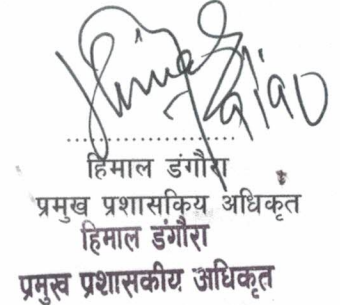 ....................
हिमाल डंगौरा
प्रमुख प्रशासकिय अधिकृत
हिमाल डंगौरा
प्रमुख प्रशासकीय अधिकृत